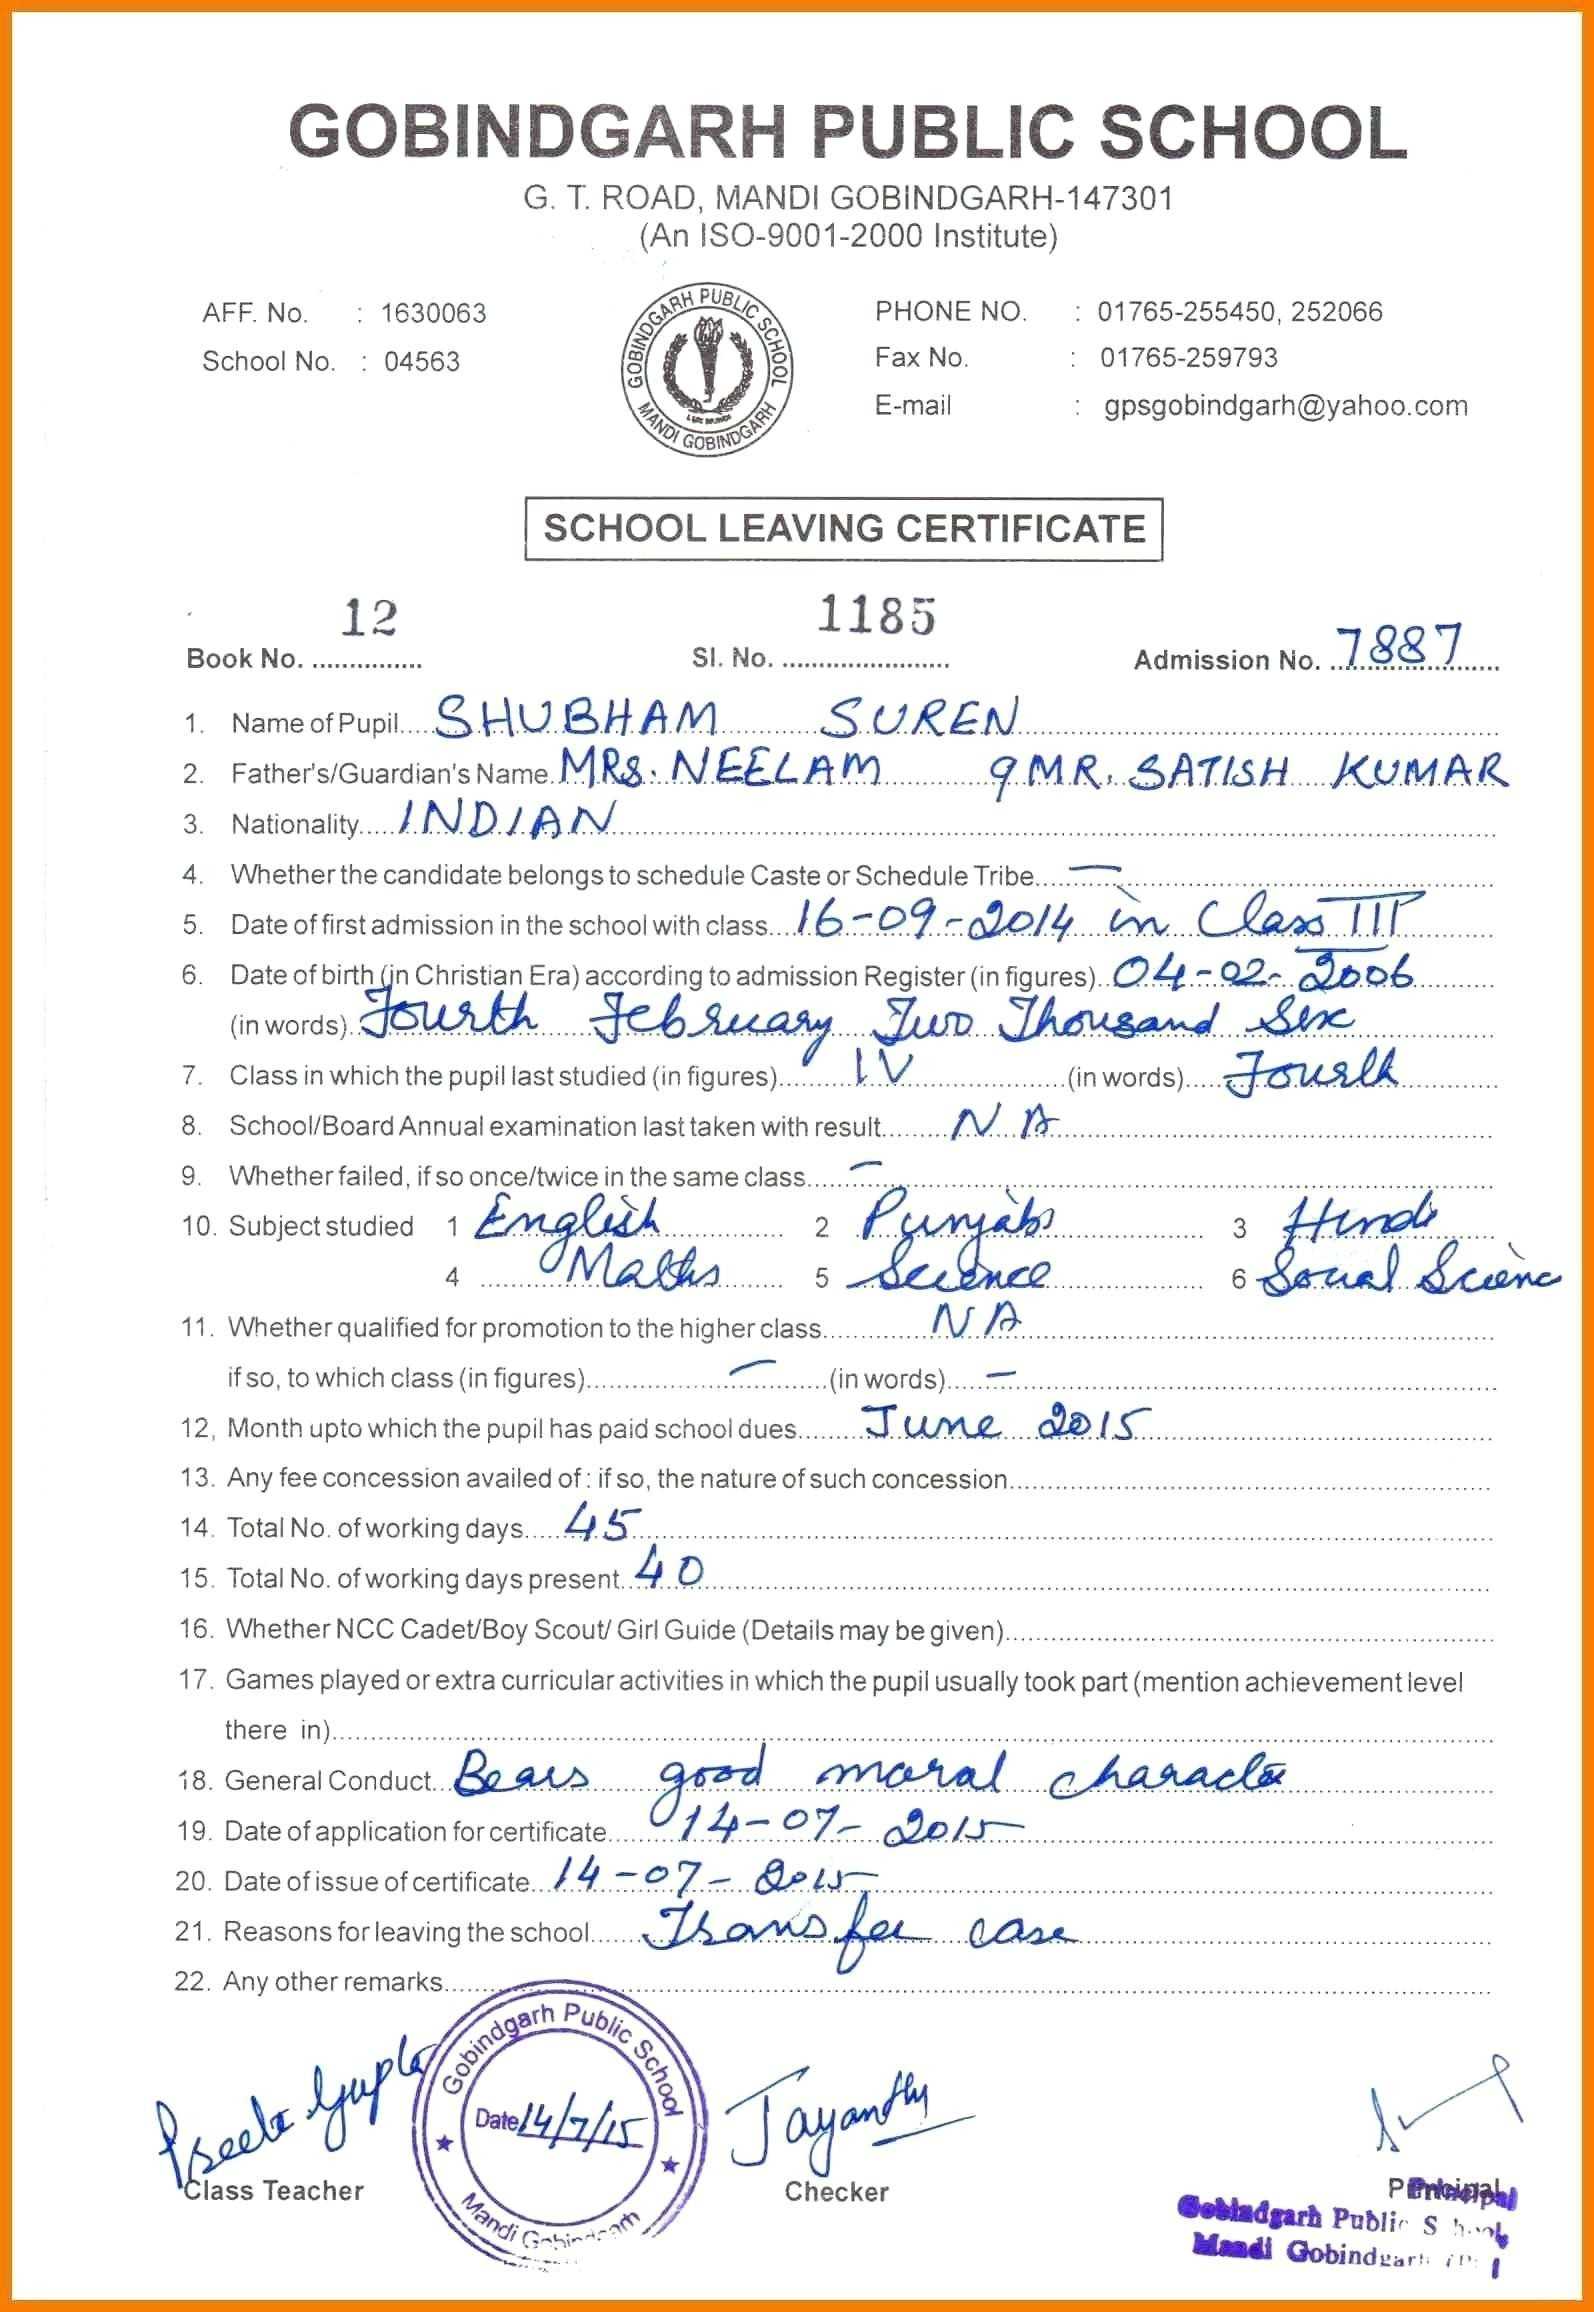 GOBINDGARH PUBLIC SCHOOL
G. T. ROAD, MANDI GOBINDGARH-147301
(An ISO-9001-2000 Institute)
AFF. No. : 1630063
School No. : 04563
GOBINDGARH PUBLIC SCHOOL
MANDI GOBINDGARH
PHONE NO. : 01765-255450, 252066
Fax No. : 01765-259793
E-mail : gpsgobindgarh@yahoo.com
SCHOOL LEAVING CERTIFICATE
Book No. 12 Sl. No. 1185 Admission No. 7887
1. Name of Pupil SHUBHAM SUREN
2. Father's/Guardian's Name MRS. NEELAM & MR. SATISH KUMAR
3. Nationality INDIAN
4. Whether the candidate belongs to schedule Caste or Schedule Tribe —
5. Date of first admission in the school with class 16-09-2014 in Class III
6. Date of birth (in Christian Era) according to admission Register (in figures) 04-02-2006
(in words) Fourth February Two Thousand Six
7. Class in which the pupil last studied (in figures) IV (in words) Fourth
8. School/Board Annual examination last taken with result NA
9. Whether failed, if so once/twice in the same class —
10. Subject studied 1 English 2 Punjabi 3 Hindi
4 Maths 5 Science 6 Social Scienc
11. Whether qualified for promotion to the higher class NA
if so, to which class (in figures) — (in words) —
12, Month upto which the pupil has paid school dues June 2015
13. Any fee concession availed of : if so, the nature of such concession
14. Total No. of working days 45
15. Total No. of working days present 40
16. Whether NCC Cadet/Boy Scout/ Girl Guide (Details may be given)
17. Games played or extra curricular activities in which the pupil usually took part (mention achievement level
there in)
18. General Conduct Bears good moral character
19. Date of application for certificate 14-07-2015
20. Date of issue of certificate 14-07-2015
21. Reasons for leaving the school Transfer case
22. Any other remarks
Preeti Gupta
Gobindgarh Public School
Date 14/7/15
Mandi Gobindgarh
Jayanthy
Class Teacher Checker Principal
Principal
Gobindgarh Public School
Mandi Gobindgarh